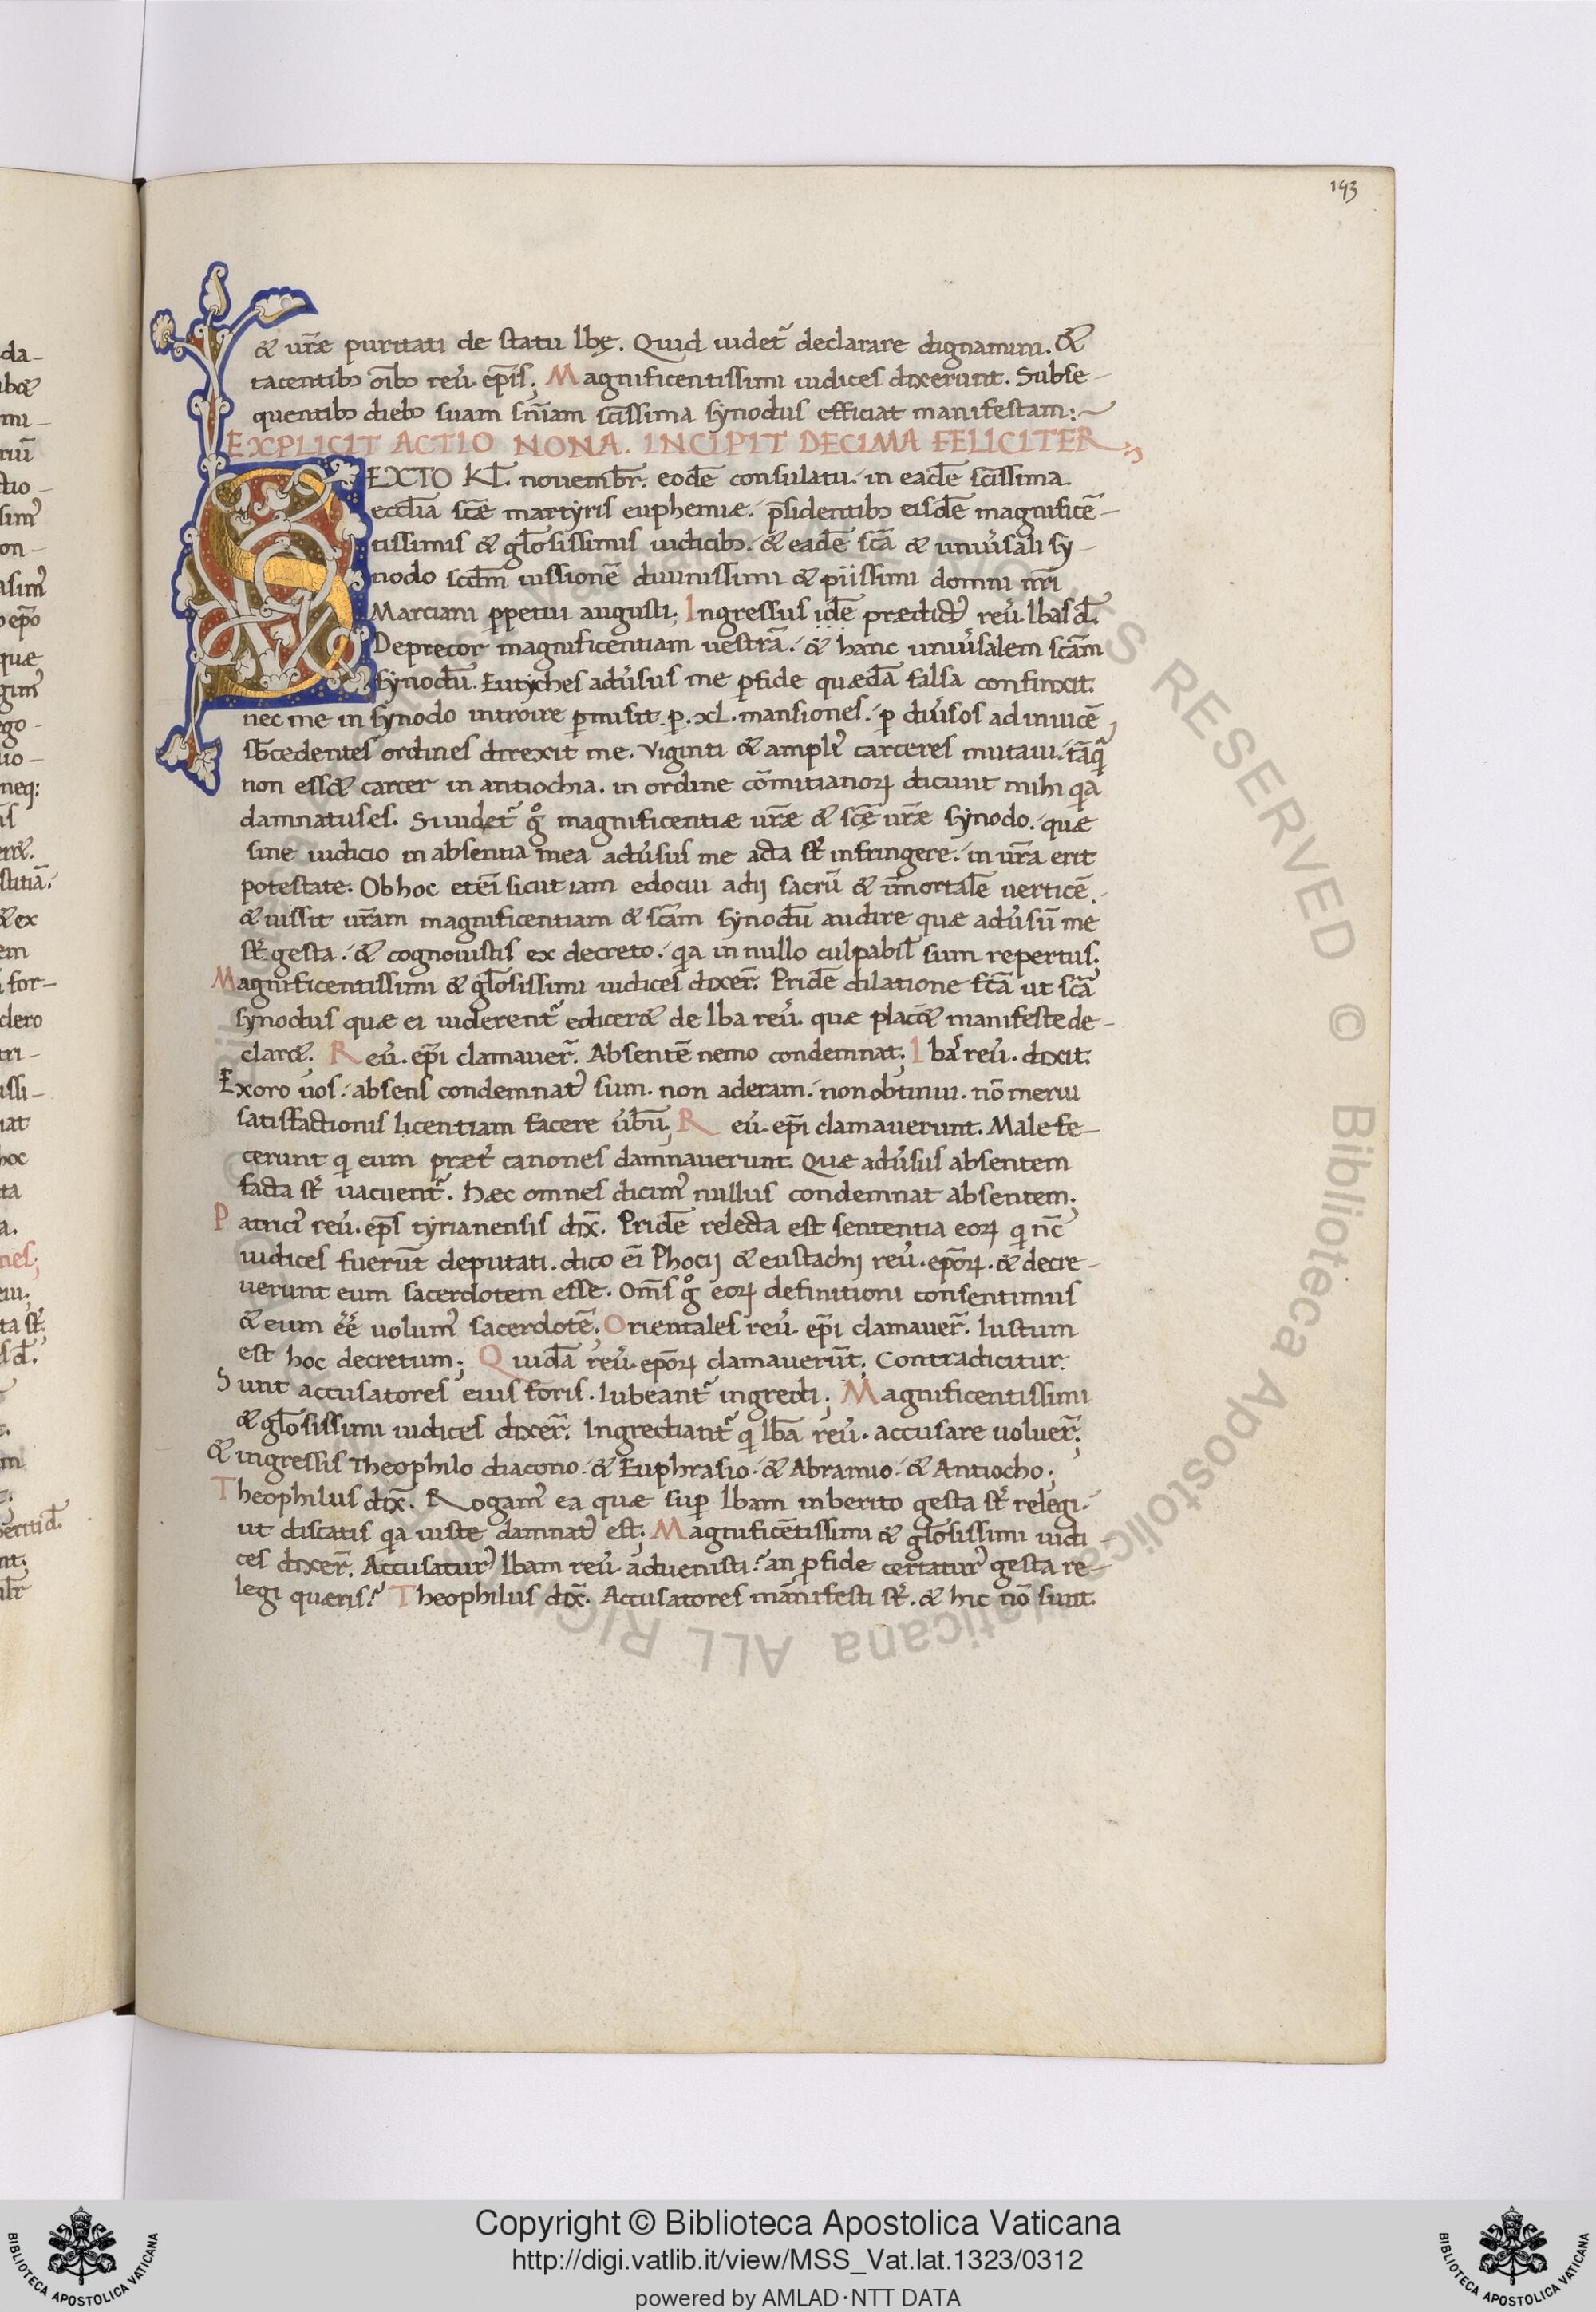 143
& ur̄æ puritati de statu Ibę. Quid uidet᷑ declarare dignamini. &
tacentib; oīb; reu̅. ep̄is; Magnificentissimi iudices dixerunt. Subse-
quentib; dieb; suam sn̄iam sc̄issima synodus efficiat manifestam:~
EXPLICIT ACTIO NONA. INCIPIT DECIMA FELICITER
SEXTO KL̄. nouembr̄. eodē consulatu. in eadē sc̄issima
eccl̄ia sc̄æ martyris euphemiæ. p̄sidentib; eisdē magnificē-
tissimis & gl̄osissimis iudicib;. & eadē sc̄a & uniuʼsali sy-
nodo scd̄m iussionē diuinissimi & piissimi domni nr̄i
Marciani ꝑpetui augusti; Ingressus idē prædictʼ reu̅. Ibas d̄.
Deprecor magnificentiam uestrā. & hanc uniuʼsalem sc̄am
synodū. Eutyches aduʼsus me ꝑfide quædā falsa confinxit.
nec me in synodo introire ꝑmisit. ꝑ. xl. mansiones. ꝑ diuʼsos ad inuicē
sb̄cedentes ordines direxit me. Viginti & ampliʼ carceres mutaui. tāqͣ
non ess& carcer in antiochia. in ordine cōmitianoꝝ dicunt mihi qa
damnatus es. Si uidet᷑ gͦ magnificentiæ ur̄æ & sc̄ę ur̄æ synodo. quæ
sine iudicio in absentia mea aduʼsus me acta st̄ infringere. in ur̄a erit
potestate. Ob hoc eteī sicut iam edocui adii sacrū & īmortalē uerticē.
& iussit ur̄am magnificentiam & sc̄am synodū audire quæ aduʼsū me
st̄ gesta. & cognouistis ex decreto. qa in nullo culpabil̄ sum repertus.
Magnificentissimi & gl̄osissimi iudices dixer̄. Pridē dilatione fc̄a ut sc̄a
synodus quæ ei uiderent᷑ edicer& de Iba reu̅. quæ plac& manifeste de-
clar&; Reu̅. ep̄i clamauer̄. Absentē nemo condemnat; Ibaʼ reu̅. dixit.
Exoro uos. absens condemnatʼ sum. non aderam. non obtinui. nō merui
satisfactionis licentiam facere ūbū; Reu̅. ep̄i clamauerunt. Male fe-
cerunt qi eum prætʼ canones damnauerunt. Quæ aduʼsus absentem
facta st̄ uacuent᷑. hæc omnes dicimʼ nullus condemnat absentem;
Patriciʼ reu̅. ep̄s tyrianensis dix̄. Pridē relecta est sententia eoꝝ qi nc̄
iudices fuerūt deputati. dico eī Phocii & eustachii reu̅. ep̄oꝝ. & decre-
uerunt eum sacerdotem esse. Om̄s gͦ eoꝝ definitioni consentimus
& eum ēē uolumʼ sacerdotē; Orientales reu̅. ep̄i clamauer̄. Iustum
est hoc decretum; Quidā reu̅. ep̄oꝝ clamauerūt. Contradicitur.
Sunt accusatores eius foris. Iubeant᷑ ingredi; Magnificentissimi
& gl̄osissimi iudices dixer̄. Ingrediant᷑ qi Ibā reu̅. accusare uoluer̄;
& ingressis Theophilo diacono. & Euphrasio. & Abramio. & Antiocho;
Theophilus dix̄. Rogamʼ ea quæ sup̄ Ibam in berito gesta st̄ relegi.
ut discatis qa iuste damnatʼ est; Magnificētissimi & gl̄osissimi iudi-
ces dixer̄. Accusaturʼ Ibam reu̅ aduenisti? an ꝑ fide certaturʼ gesta re-
legi quæris? Theophilus dix̄. Accusatores manifesti st̄. & hic nō sunt.
Copyright © Biblioteca Apostolica Vaticana
http://digi.vatlib.it/view/MSS_Vat.lat.1323/0312
powered by AMLAD·NTT DATA
BIBLIOTECA APOSTOLICA VATICANA
BIBLIOTECA APOSTOLICA VATICANA